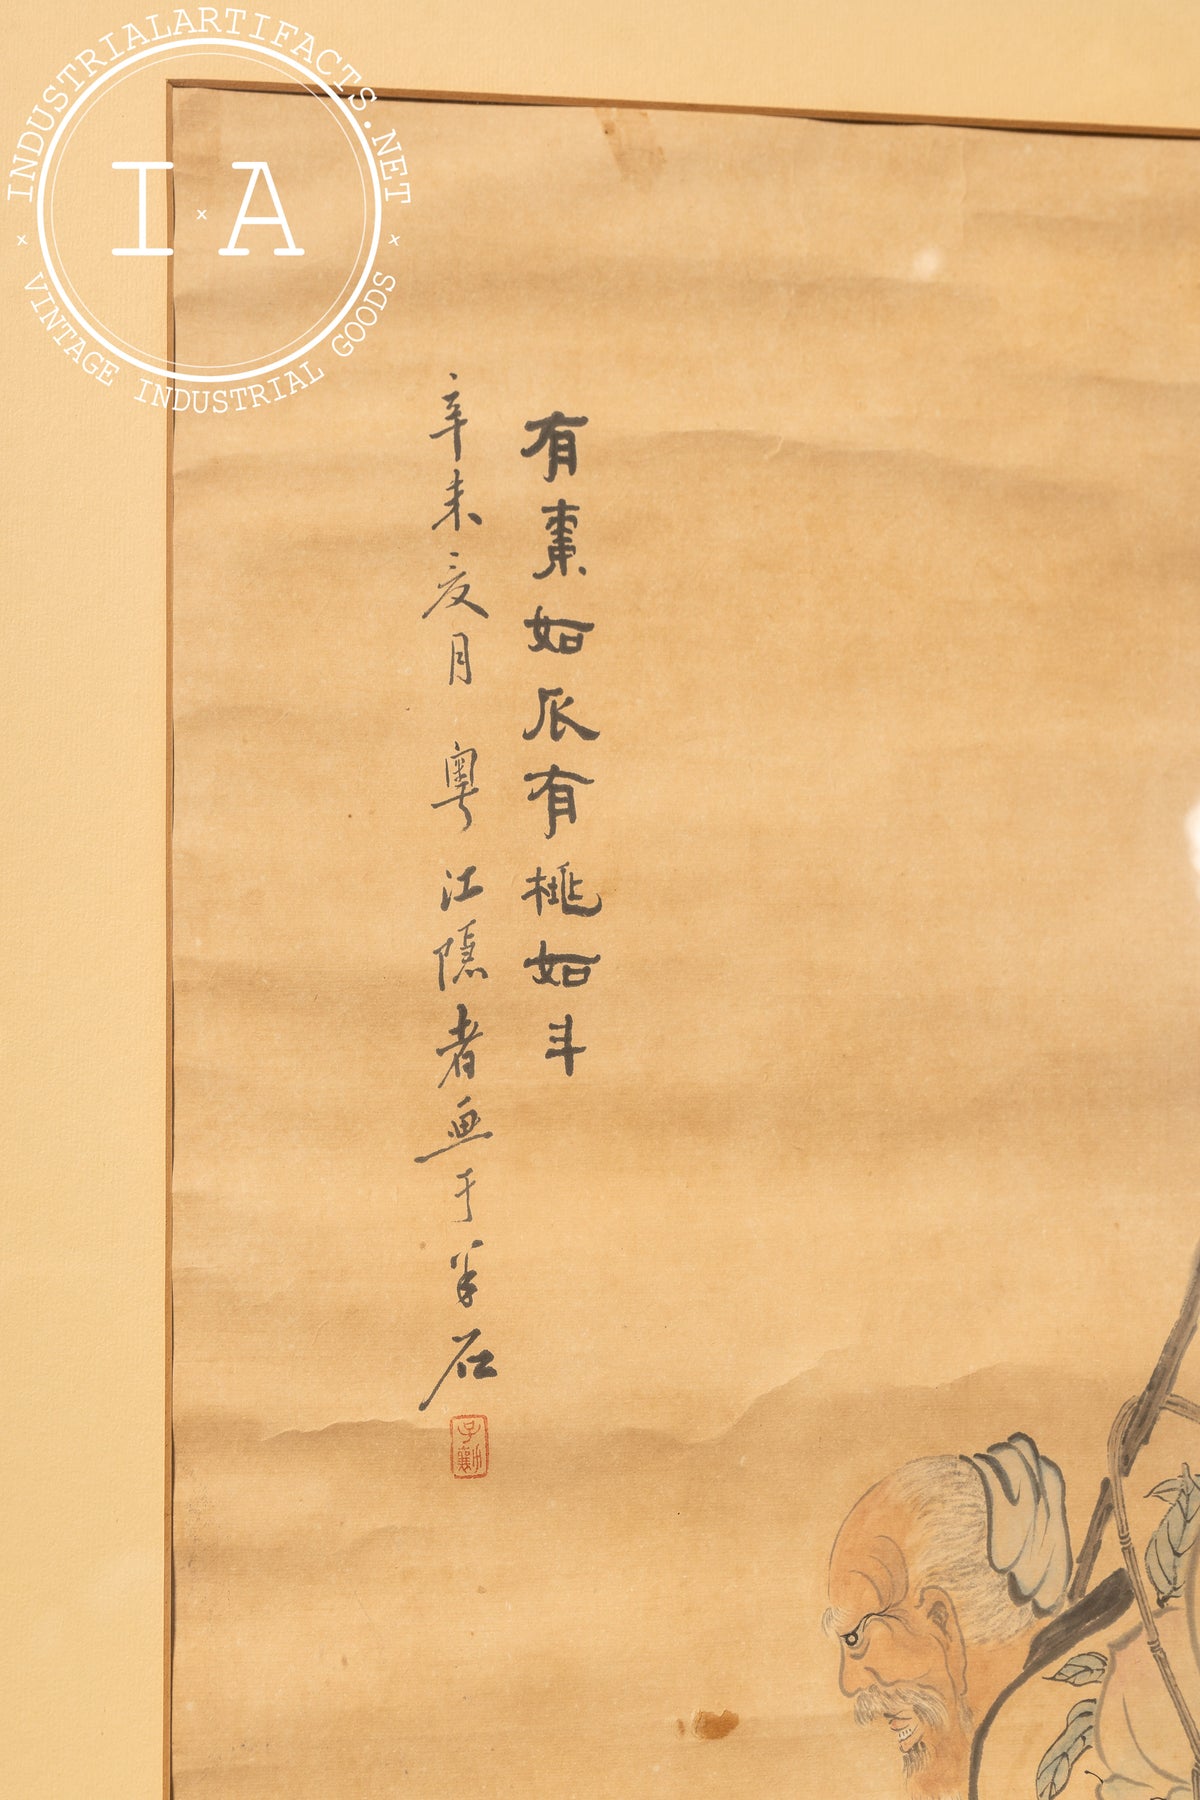 INDUSTRIALARTIFACTS.NET
I A
VINTAGE INDUSTRIAL GOODS
有棗如瓜有桃如斗
辛未夏月 粤江隱者畫于羊石
子